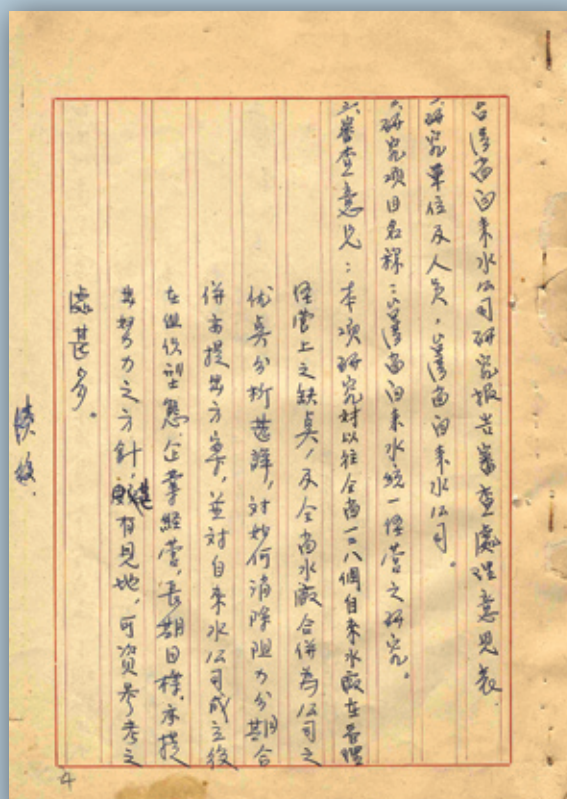 台湾省自来水公司研究报告審查處理意見表
一、研究単位及人员：台湾省自来水公司。
二、研究项目名称：台湾省自来水統一経营之研究。
三、審查意見：本项研究对以往全省一二八個自来水廠在管理
経营上之缺臭，及全省水廠合併為公司之
优臭分析甚詳，对如何消除阻力分期合
併亦提出方案，並对自来水公司成立後
在組织型態、企業経营、長期目標，亦提
出努力之方針，甚有見地，可资参考之
處甚多。
4